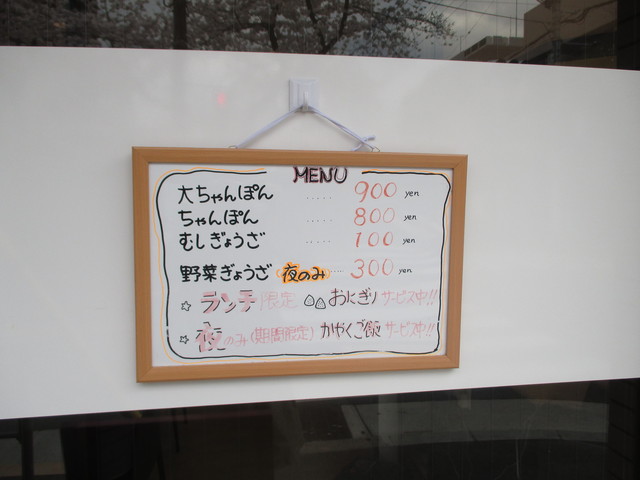 MENU
大ちゃんぽん ..... 900 yen
ちゃんぽん ..... 800 yen
むしぎょうざ ..... 100 yen
野菜ぎょうざ 夜のみ .... 300 yen
☆ ランチ限定 おにぎりサービス中!!
☆ 夜のみ(期間限定) かやくご飯 サービス中!!